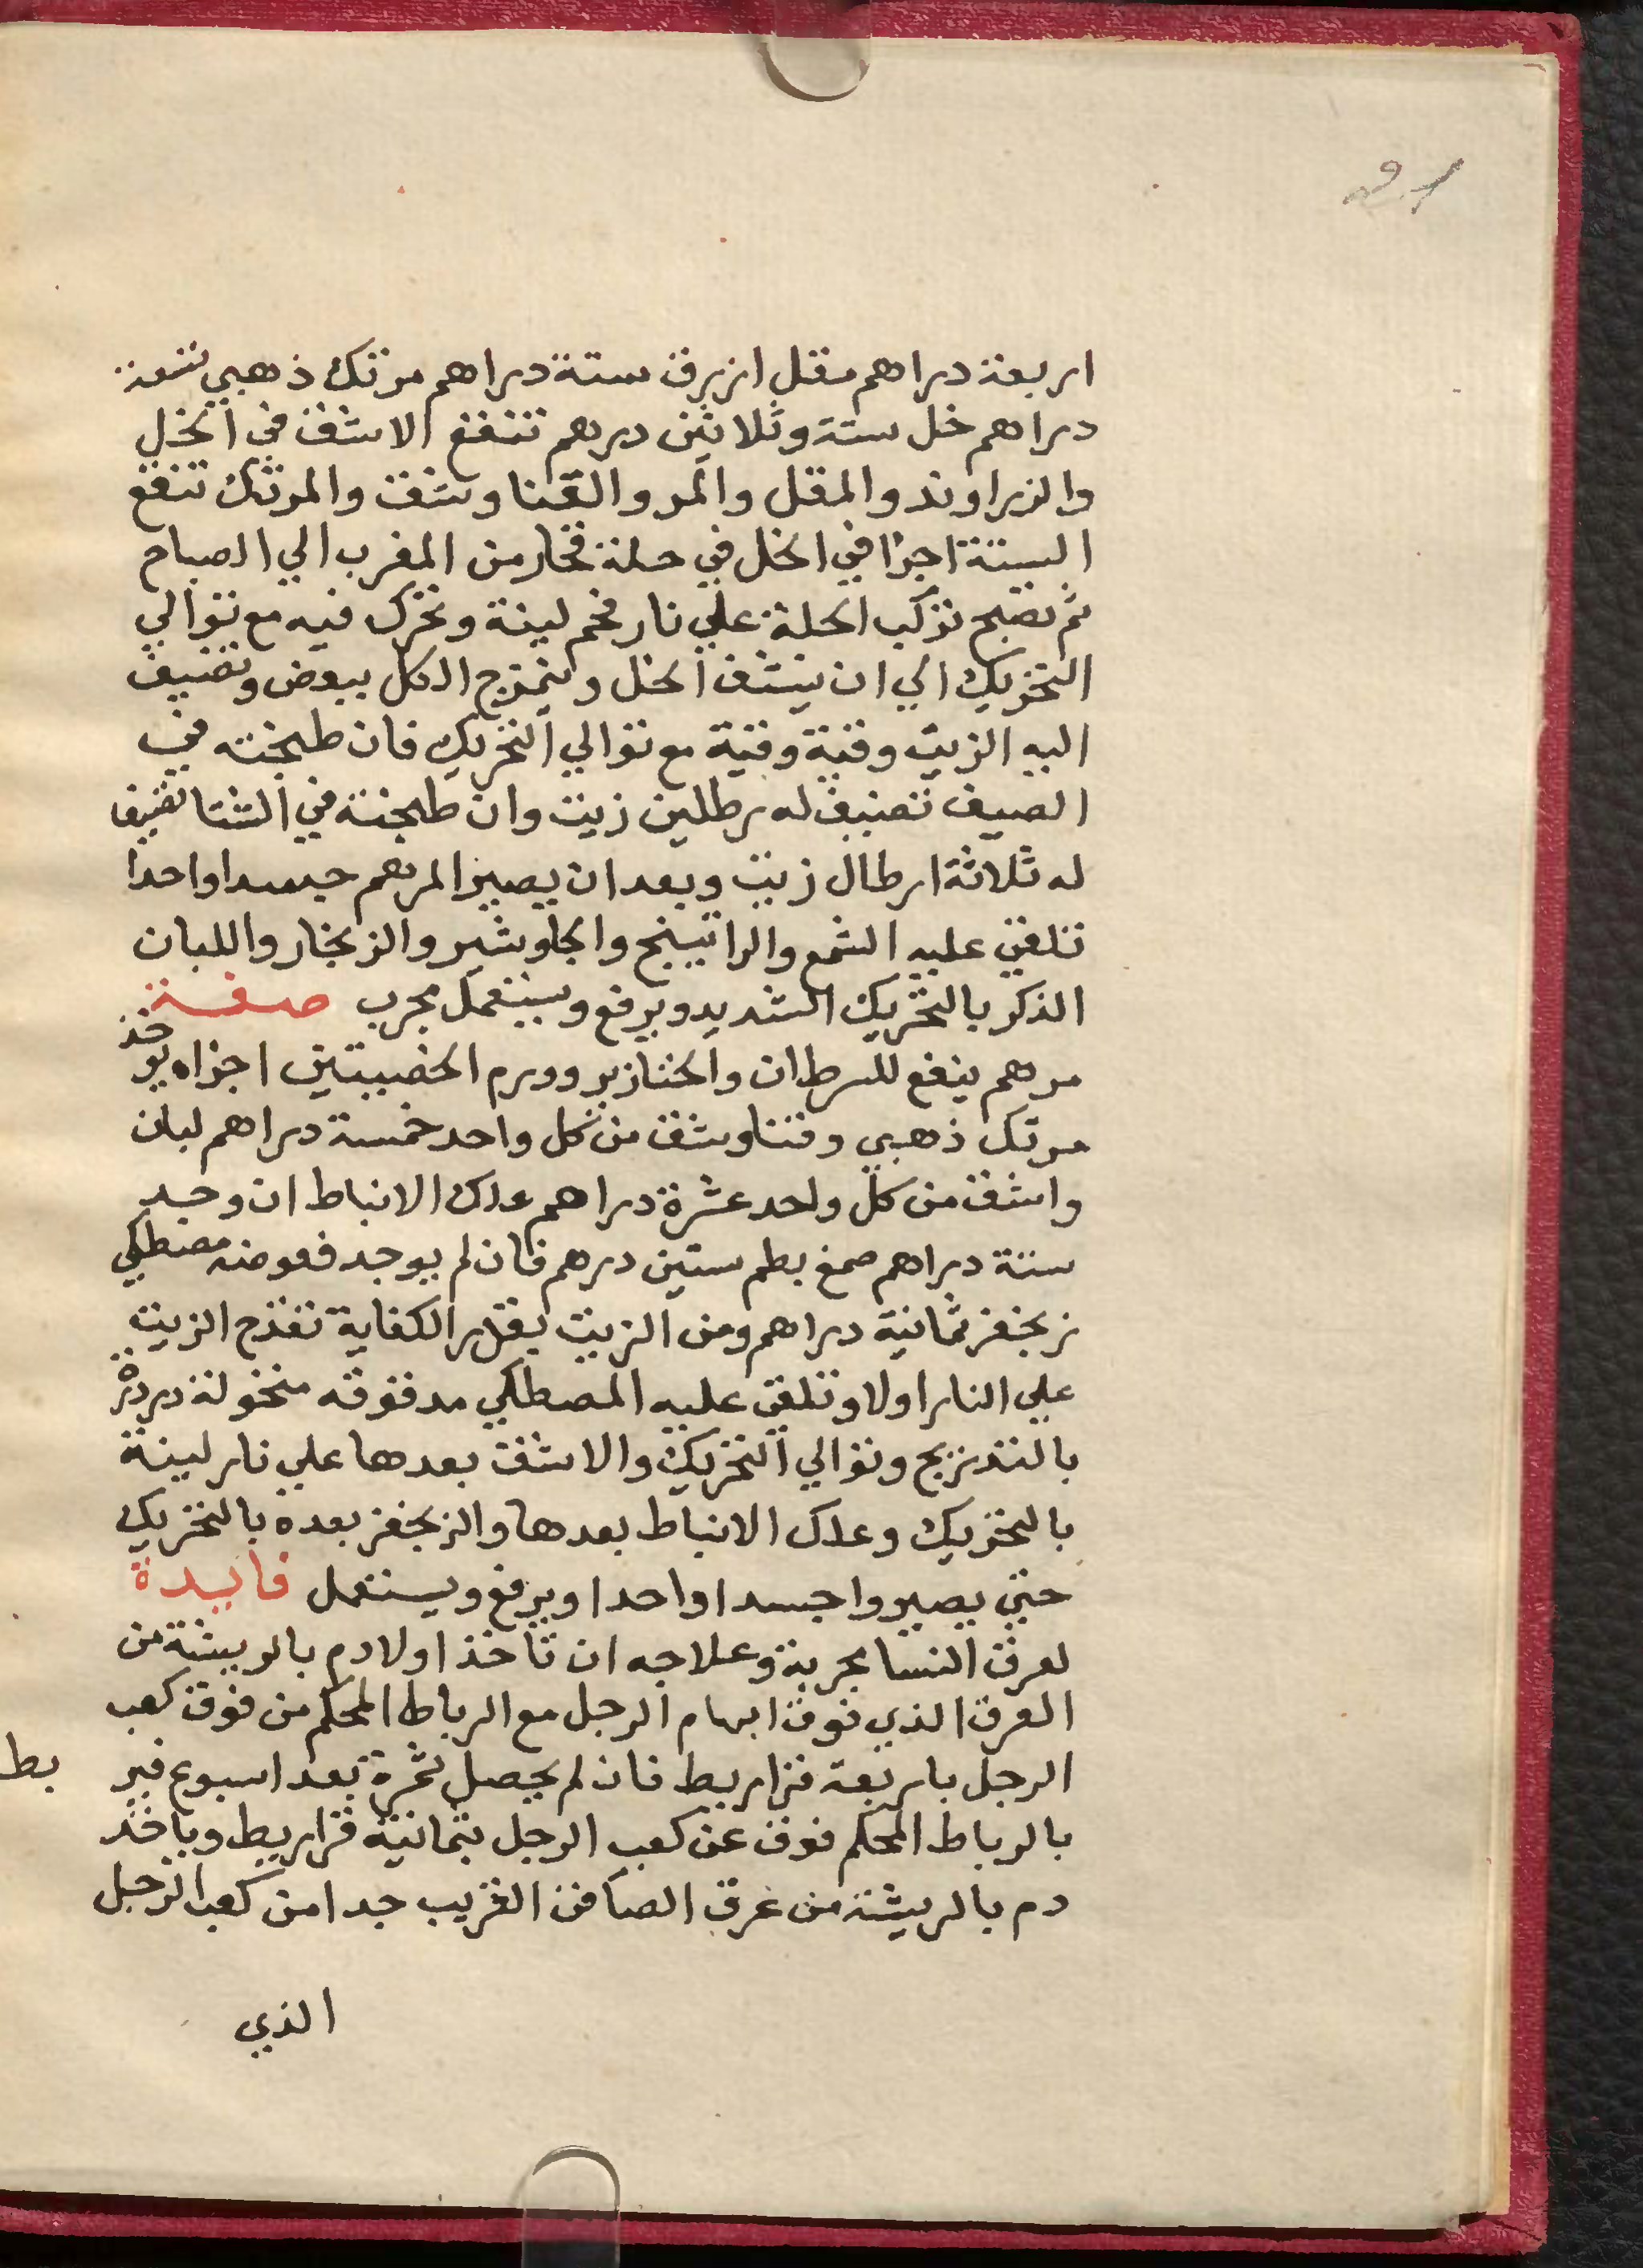 اربعة دراهم مقل ازرق ستة دراهم مرتك ذهبي تسعة
دراهم خل ستة وثلاثين درهم تنقع الاشق في الخل
والزراوند والمقل والمر والقنا وشق والمرتك تنقع
الستة اجزا في الخل في حلة فخار من المغرب الي الصباح
ثم تصبح تركب الحلة علي نار فحم لينة وتحرك فيه مع توالي
التحريك الي ان ينشف الخل ويمتزج الكل ببعض وتضيف
اليه الزيت وقية وقية مع توالي التحريك فان طبخته في
الصيف تضيف له رطلين زيت وان طبخته في الشتا تضيف
له ثلاثة ارطال زيت وبعد ان يصير المرهم جسدا واحدا
تلقي عليه الشمع والراتينج والجاوشير والزنجار واللبان
الذكر بالتحريك الشديد ويرفع ويستعمل مجرب صفة
مرهم ينفع للسرطان والخنازير وورم الخصيتين اجزاه يوخذ
مرتك ذهبي وقنا وشق من كل واحد خمسة دراهم لبان
واشق من كل واحد عشرة دراهم علك الانباط ان وجد
ستة دراهم صمغ بطم ستين درهم فان لم يوجد فعوضه مصطكي
زنجفر ثمانية دراهم ومن الزيت بقدر الكفاية تقدح الزيت
علي النار اولا وتلقي عليه المصطكي مدقوقه منخولة دردرة
بالتدريج وتوالي التحريك والاشق بعدها علي نار لينة
بالتحريك وعلك الانباط بعدها والزنجفر بعده بالتحريك
حتي يصيروا جسدا واحدا ويرفع ويستعمل فايدة
لعرق النسا مجربة وعلاجه ان تاخذ اولا دم بالريشة من
العرق الذي فوق ابهام الرجل مع الرباط المحكم من فوق كعب
الرجل باربعة قراريط فان لم يحصل ثمرة بعد اسبوع فير بط
بالرباط المحكم فوق عن كعب الرجل بثمانية قراريط وياخذ
دم بالريشة من عرق الصافن القريب جدا من كعب الرجل
الذي